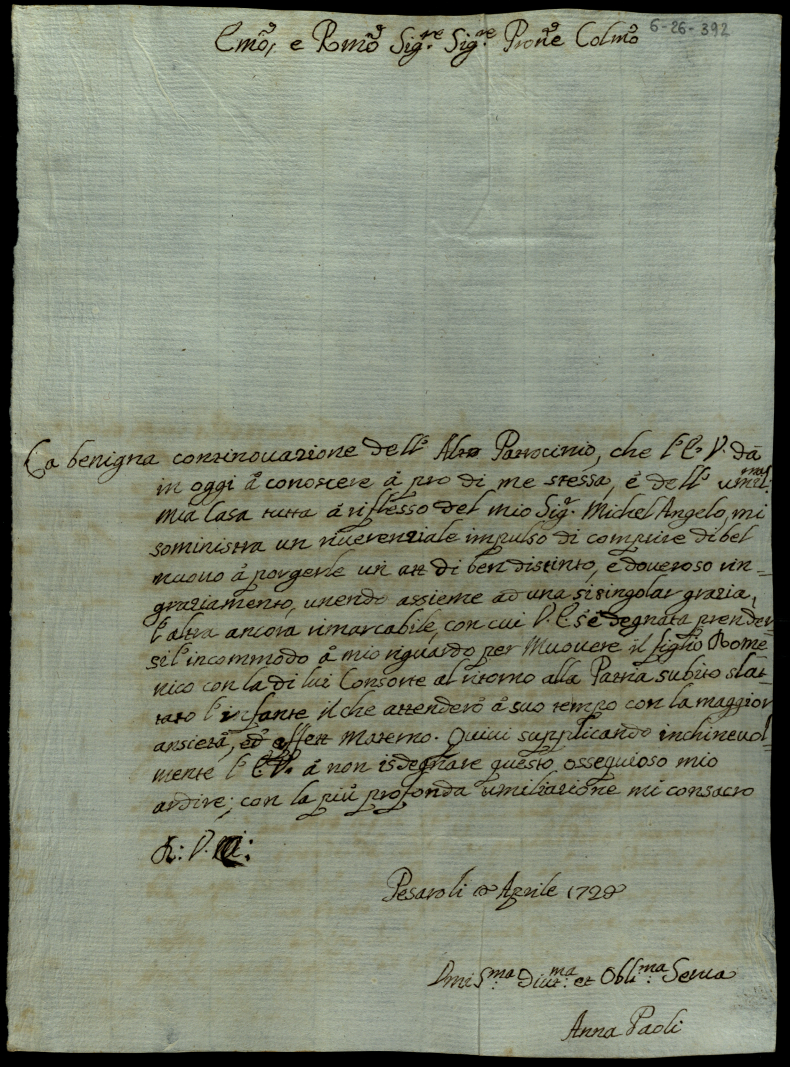 6-26-392
Emo, e Rmo Sigre Sigre Prone Colmo
La benigna continouazione dell' Alto Patrocinio, che l'E. V. dà
in oggi à conoscere à pro di me stessa, é dell' umilma
mia Casa tutta à riflesso del mio Sigr Michel Angelo, mi
soministra un riuerenziale impulso di compire di bel
nuouo à porgerle un att di ben distinto, e doueroso rin-
graziamento, unendo assieme ad una si singolar grazia,
l'altra ancora rimarcabile, con cui V. E. s'é degnata prender
si l'incommodo à mio riguardo per Muouere il figlio Dome
nico con la di lui Consorte al ritorno alla Patria subito slat-
tato l'infante il che attenderò à suo tempo con la maggior
ansietà, ed affett Materno. Quiui supplicando inchineuol-
mente l'E. V. à non isdegnare questo osseguioso mio
ardire; con la più profonda umiliazione mi consacro
V.
Pesaro li Aprile 172
Diuma et Oblma Serua
Anna Paoli